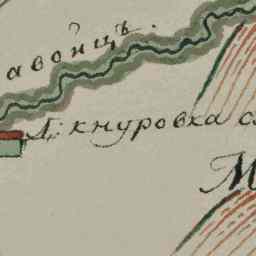 авонцъ.
Д: кнуровка с
М